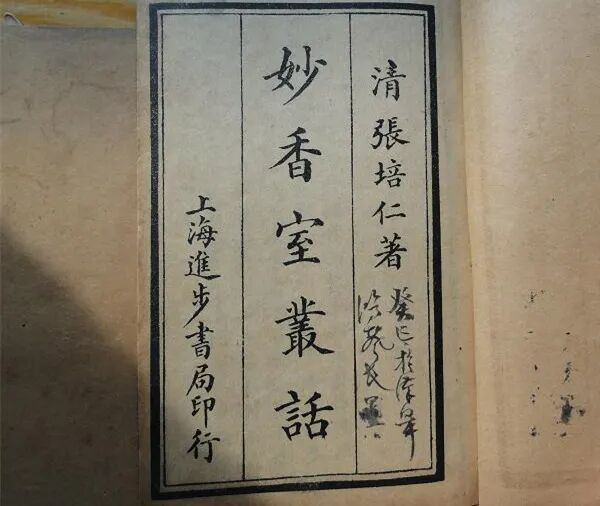 清張培仁著
妙香室叢話
上海進步書局印行